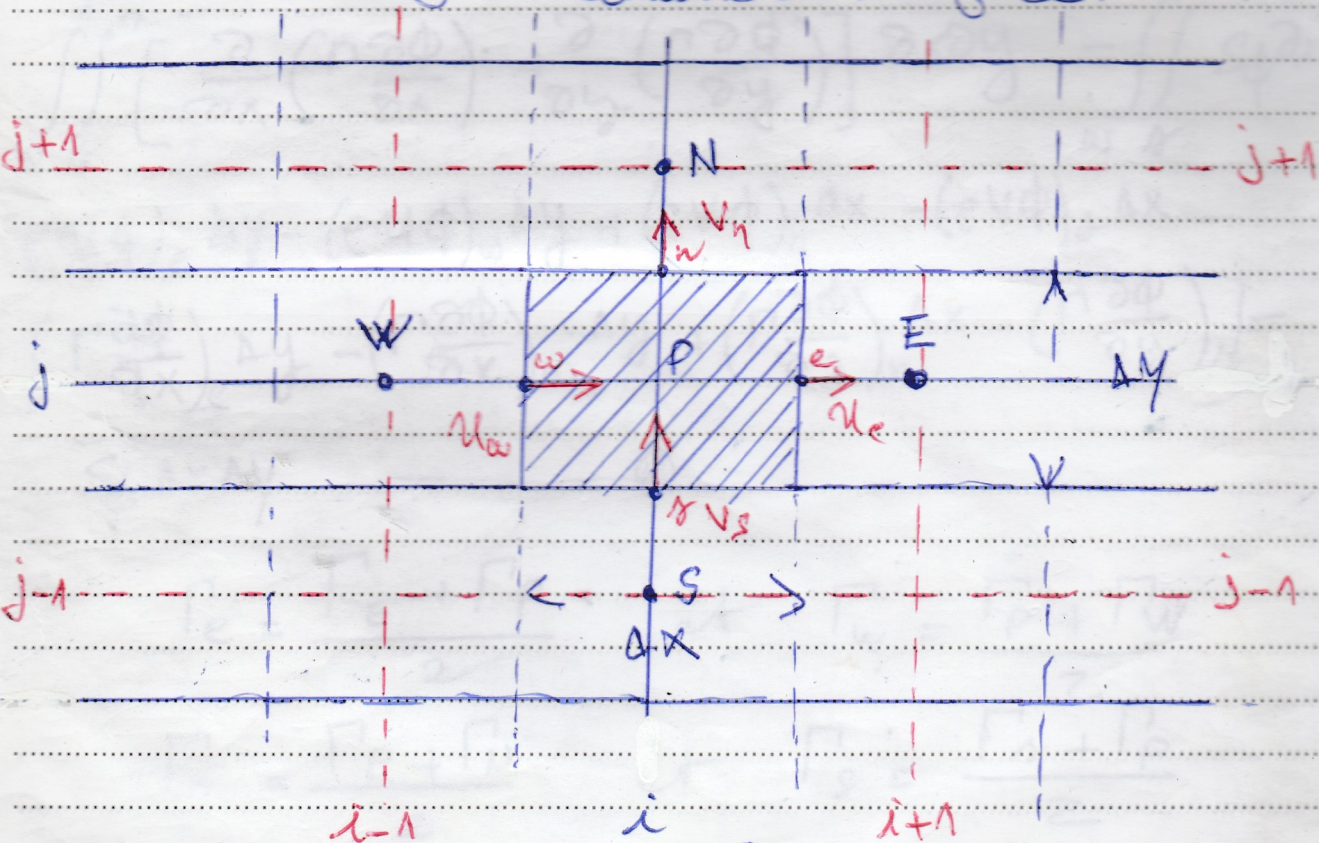 j+1 j+1
N
Vn
n
W E
j w P e ΔY
uw ue
s Vs
j-1 S j-1
ΔX
i-1 i i+1